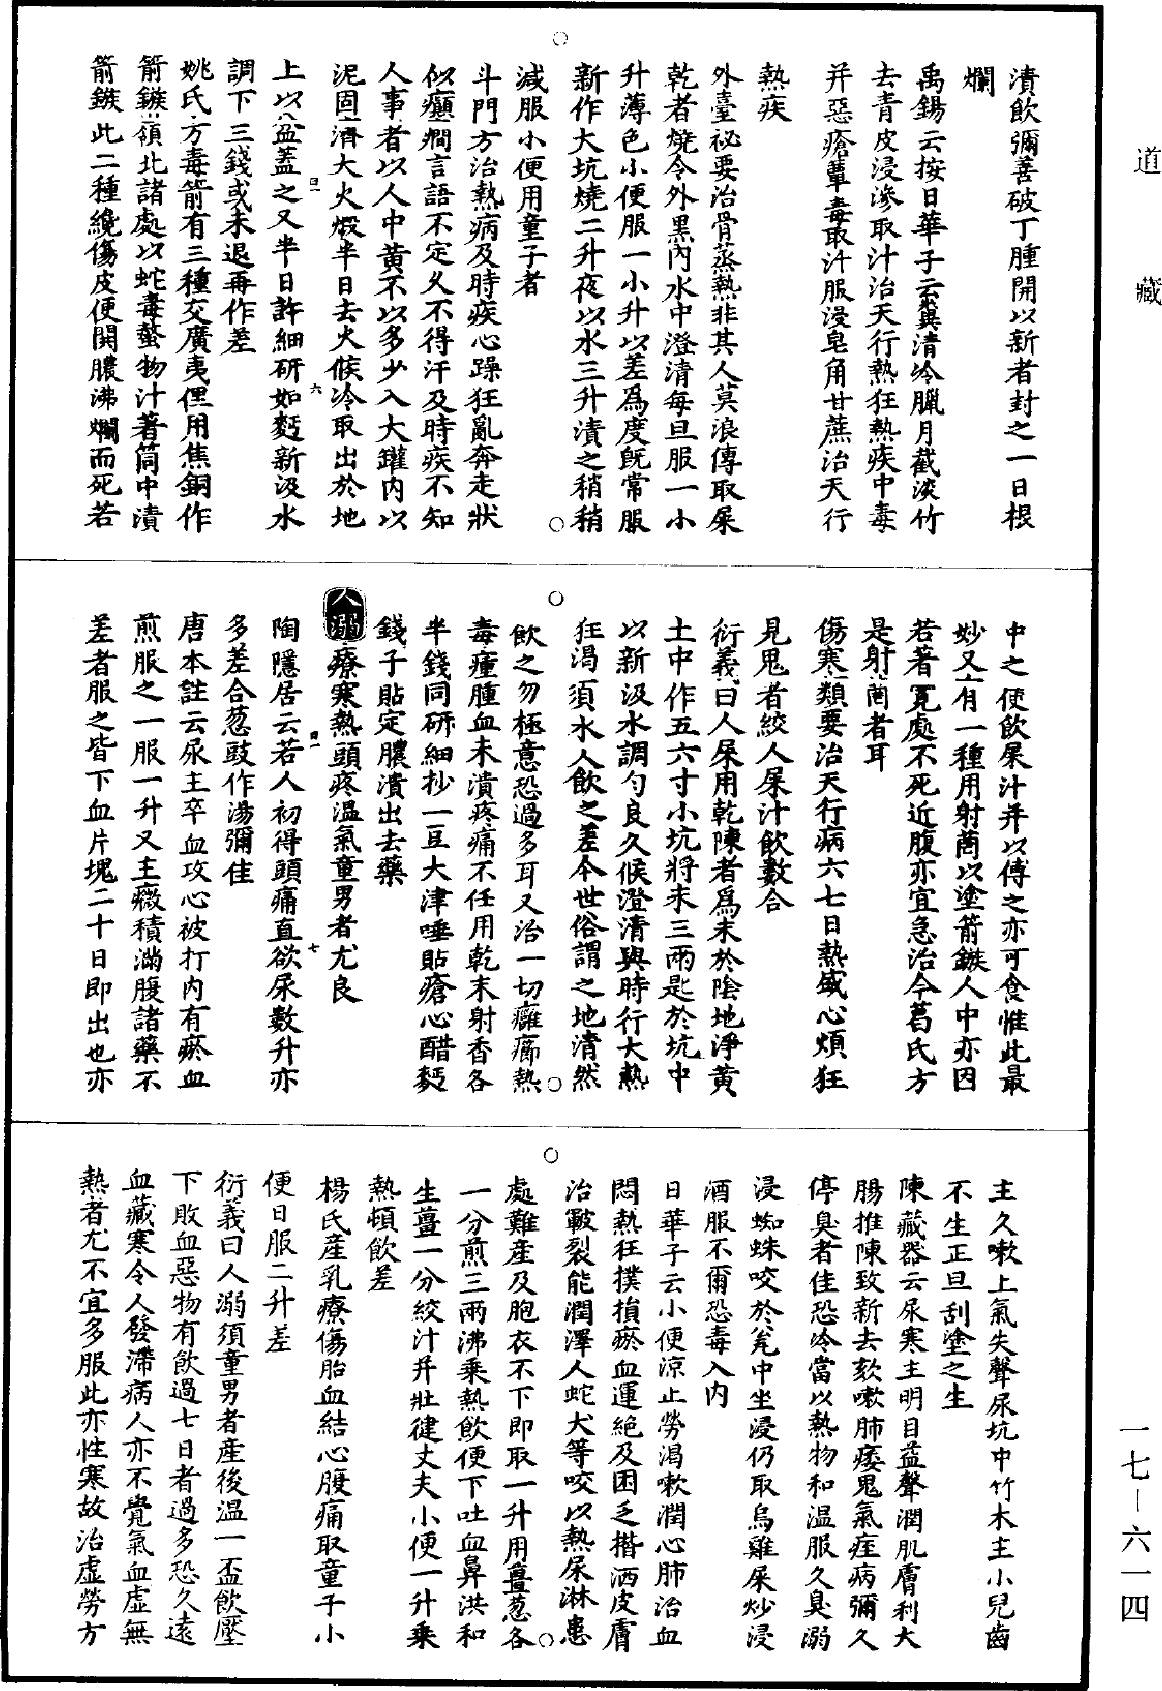 道藏
漬飲彌善破丁腫開以新者封之一日根
爛
禹錫云按日華子云糞清冷臘月截淡竹
去青皮浸滲取汁治天行熱狂熱疾中毒
并惡瘡蕈毒取汁服浸皂角甘蔗治天行
熱疾
外臺祕要治骨蒸熱非其人莫浪傳取屎
乾者燒令外黑內水中澄清每旦服一小
升薄色小便服一小升以差為度既常服
新作大坑燒二升夜以水三升漬之稍稍
減服小便用童子者
斗門方治熱病及時疾心躁狂亂奔走狀
似癲癇言語不定久不得汗及時疾不知
人事者以人中黃不以多少入大罐內以
泥固濟大火煅半日去火候冷取出於地
四一
六
上以盆蓋之又半日許細研如麪新汲水
調下三錢或未退再作差
姚氏方毒箭有三種交廣夷俚用焦銅作
箭鏃嶺北諸處以蛇毒螫物汁著筒中漬
箭鏃此二種纔傷皮便開膿沸爛而死若
中之使飲屎汁并以傅之亦可食惟此最
妙又有一種用射菵以塗箭鏃人中亦因
若著寬處不死近腹亦宜急治今葛氏方
是射菵者耳
傷寒類要治天行病六七日熱盛心煩狂
見鬼者絞人屎汁飲數合
衍義曰人屎用乾陳者為末於陰地淨黃
土中作五六寸小坑將末三兩匙於坑中
以新汲水調勻良久候澄清與時行大熱
狂渴須水人飲之差今世俗謂之地清然
飲之勿極意恐過多耳又治一切癰癤熱
毒瘇腫血未潰疼痛不任用乾末射香各
半錢同研細抄一豆大津唾貼瘡心醋麪
錢子貼定膿潰出去藥
人溺療寒熱頭疼溫氣童男者尤良
四一
七
陶隱居云若人初得頭痛直欲尿數升亦
多差合葱豉作湯彌佳
唐本註云尿主卒血攻心被打內有瘀血
煎服之一服一升又主癥積滿腹諸藥不
差者服之皆下血片塊二十日即出也亦
主久嗽上氣失聲尿坑中竹木主小兒齒
不生正旦刮塗之生
陳藏器云尿寒主明目益聲潤肌膚利大
腸推陳致新去欬嗽肺痿鬼氣痓病彌久
停臭者佳恐冷當以熱物和溫服久臭溺
浸蜘蛛咬於瓮中坐浸仍取烏雞屎炒浸
酒服不爾恐毒入內
日華子云小便涼止勞渴嗽潤心肺治血
悶熱狂撲損瘀血運絕及困乏揩洒皮膚
治皸裂能潤澤人蛇犬等咬以熱尿淋患
處難產及胞衣不下即取一升用薑葱各
一分煎三兩沸乘熱飲便下吐血鼻洪和
生薑一分絞汁并壯健丈夫小便一升乘
熱頓飲差
楊氏產乳療傷胎血結心腹痛取童子小
便日服二升差
衍義曰人溺須童男者產後溫一盃飲壓
下敗血惡物有飲過七日者過多恐久遠
血藏寒令人發滯病人亦不覺氣血虛無
熱者尤不宜多服此亦性寒故治虛勞方
一七－六一四